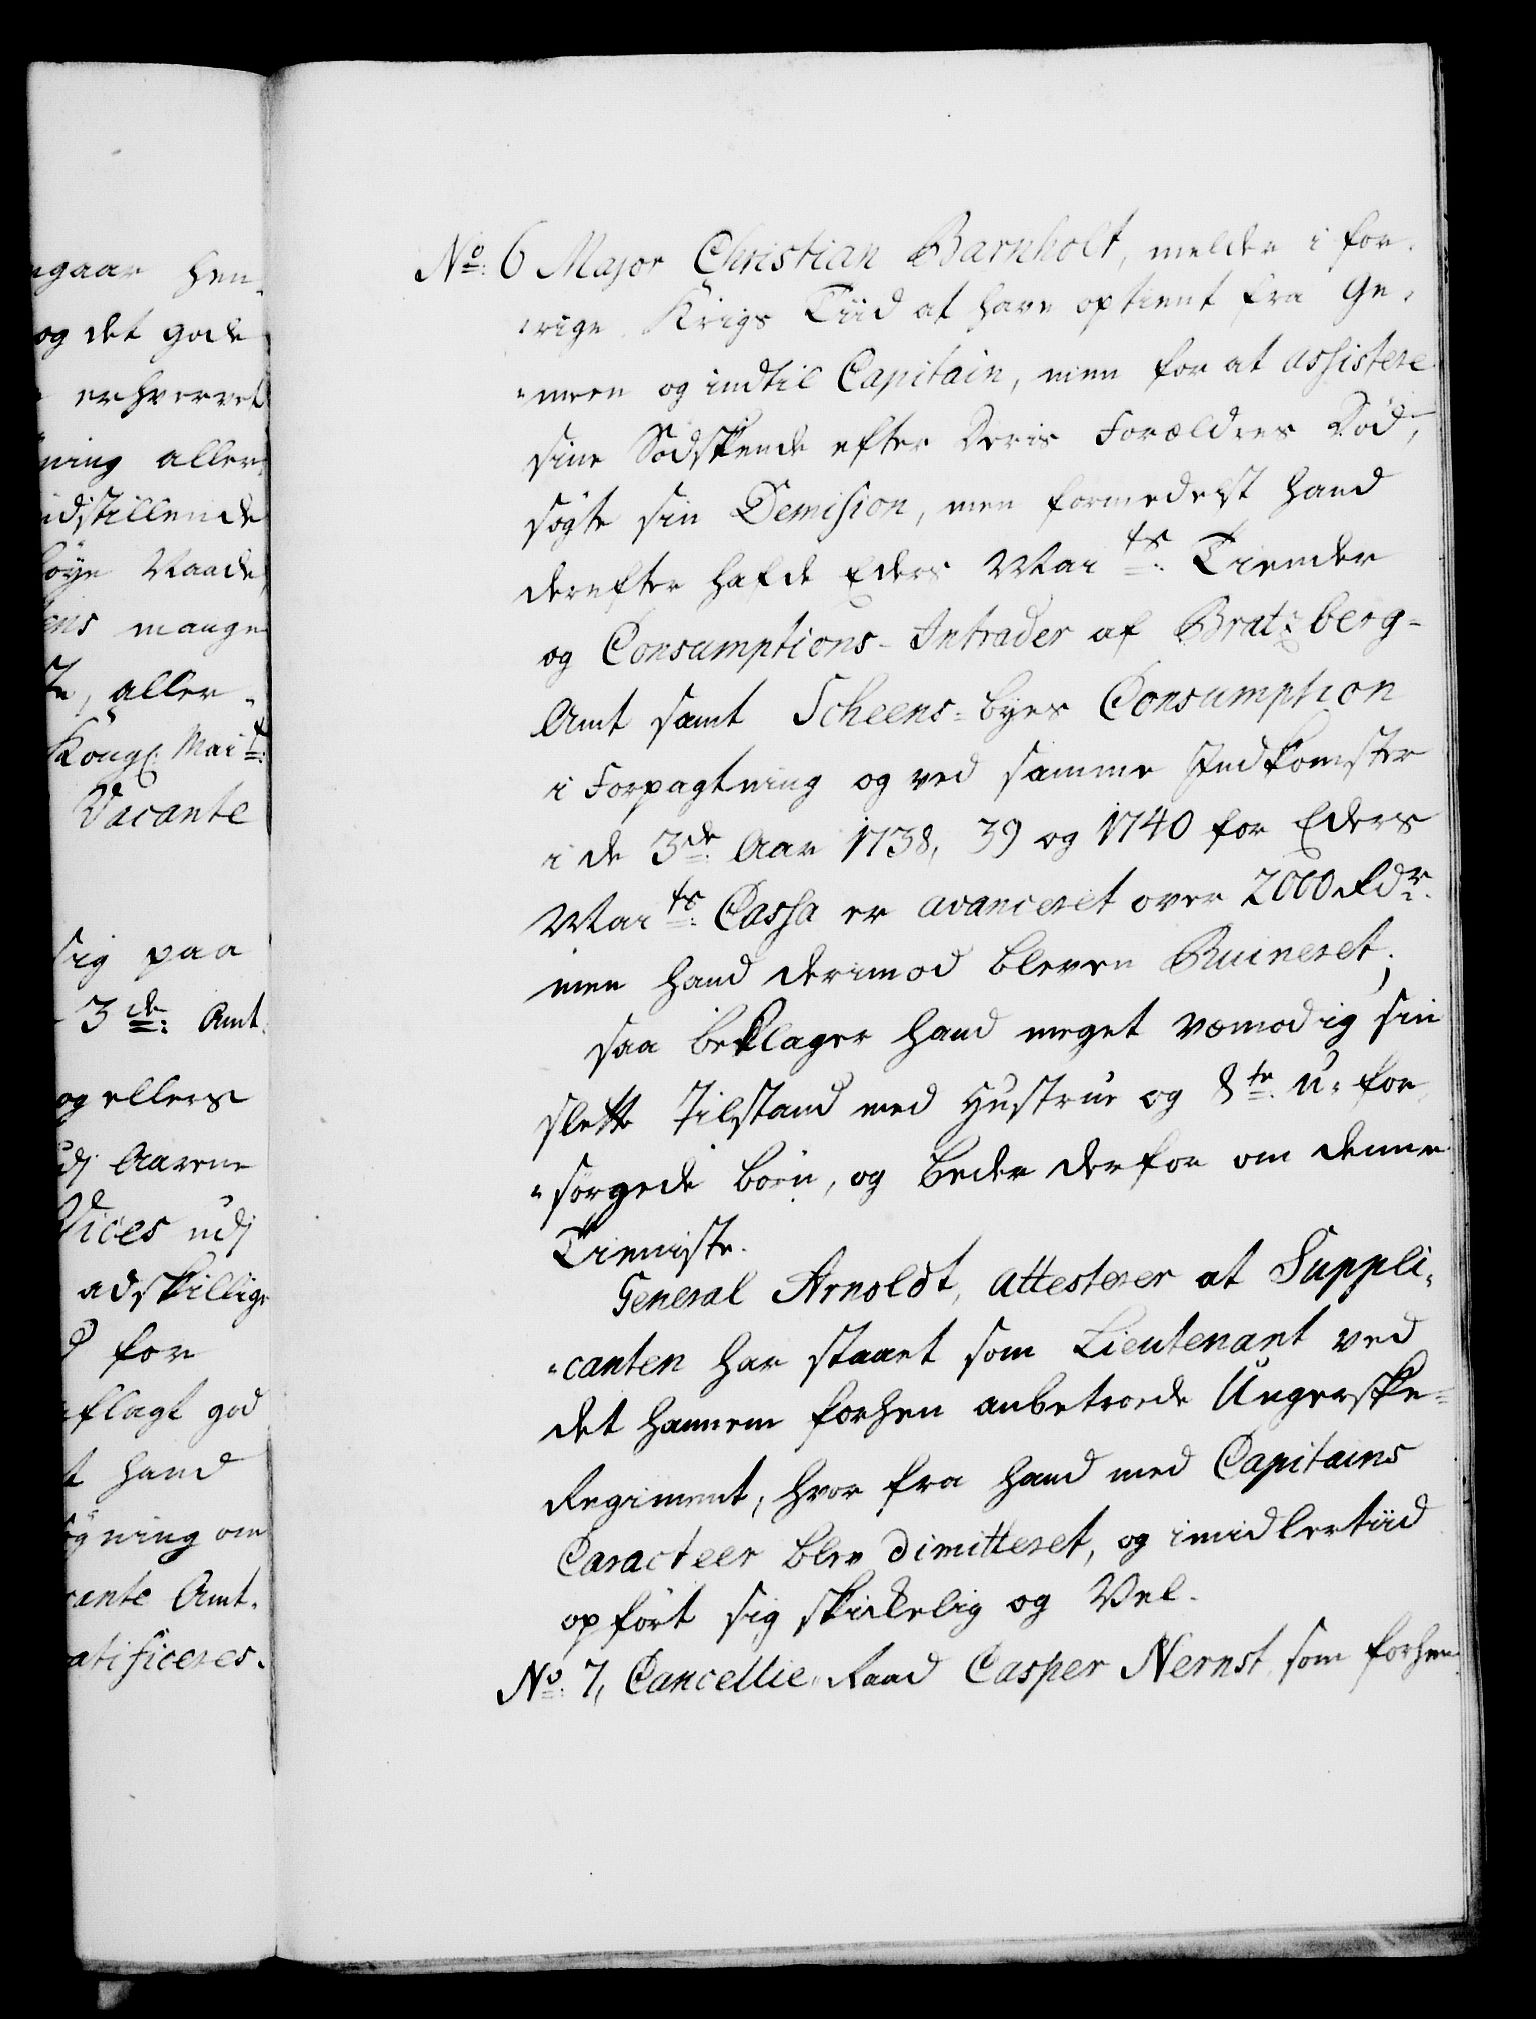 ngaar hen-
og det gode
erhvervet
ning aller-
idstillende
höye Naade
ens mange
te, aller-
Kongl: Mai t:
Vacante
sig paa
3de: Amt-
og ellers
udj Aarene
Vices udj
adskillige
for
aflagt god
t hand
øgning om
cante Amt-
atificeres.
No: 6 Major Christian Barnholt, melder i for-
-rige Krigs Tiid at have optient fra Ge-
-meen og indtil Capitain, men for at assistere
sine Södskende efter Deris Forældres Död,
sögte sin Demission, men formedelst hand
derefter hafde Eders Mai ts: Tiender
og Consumptions-Intrader af Bratzberg-
Amt samt Scheens-Byes Consumption
i Forpagtning og ved samme Indkomster
i de 3de: Aar 1738, 39 og 1740 for Eders
Mai ts: Cassa er avanceret over 2000 Rdr.
men hand derimod bleven Ruineret;
saa beklager hand meget vemodig sin
slette Tilstand med Hustrue og 8te: u-for-
-sörgede börn, og beder derfor om denne
Tieniste.
General Arnoldt, attesterer at Suppli-
-canten har staaet som Lieutenant ved
det hannem forhen anbetroede Ungerske-
Regiment, hvor fra hand med Capitains
Caracteer blev dimitteret, og imidlertiid
opfört sig skickelig og Vel.
No: 7, Cancellie-Raad Casper Nernst, som forhen